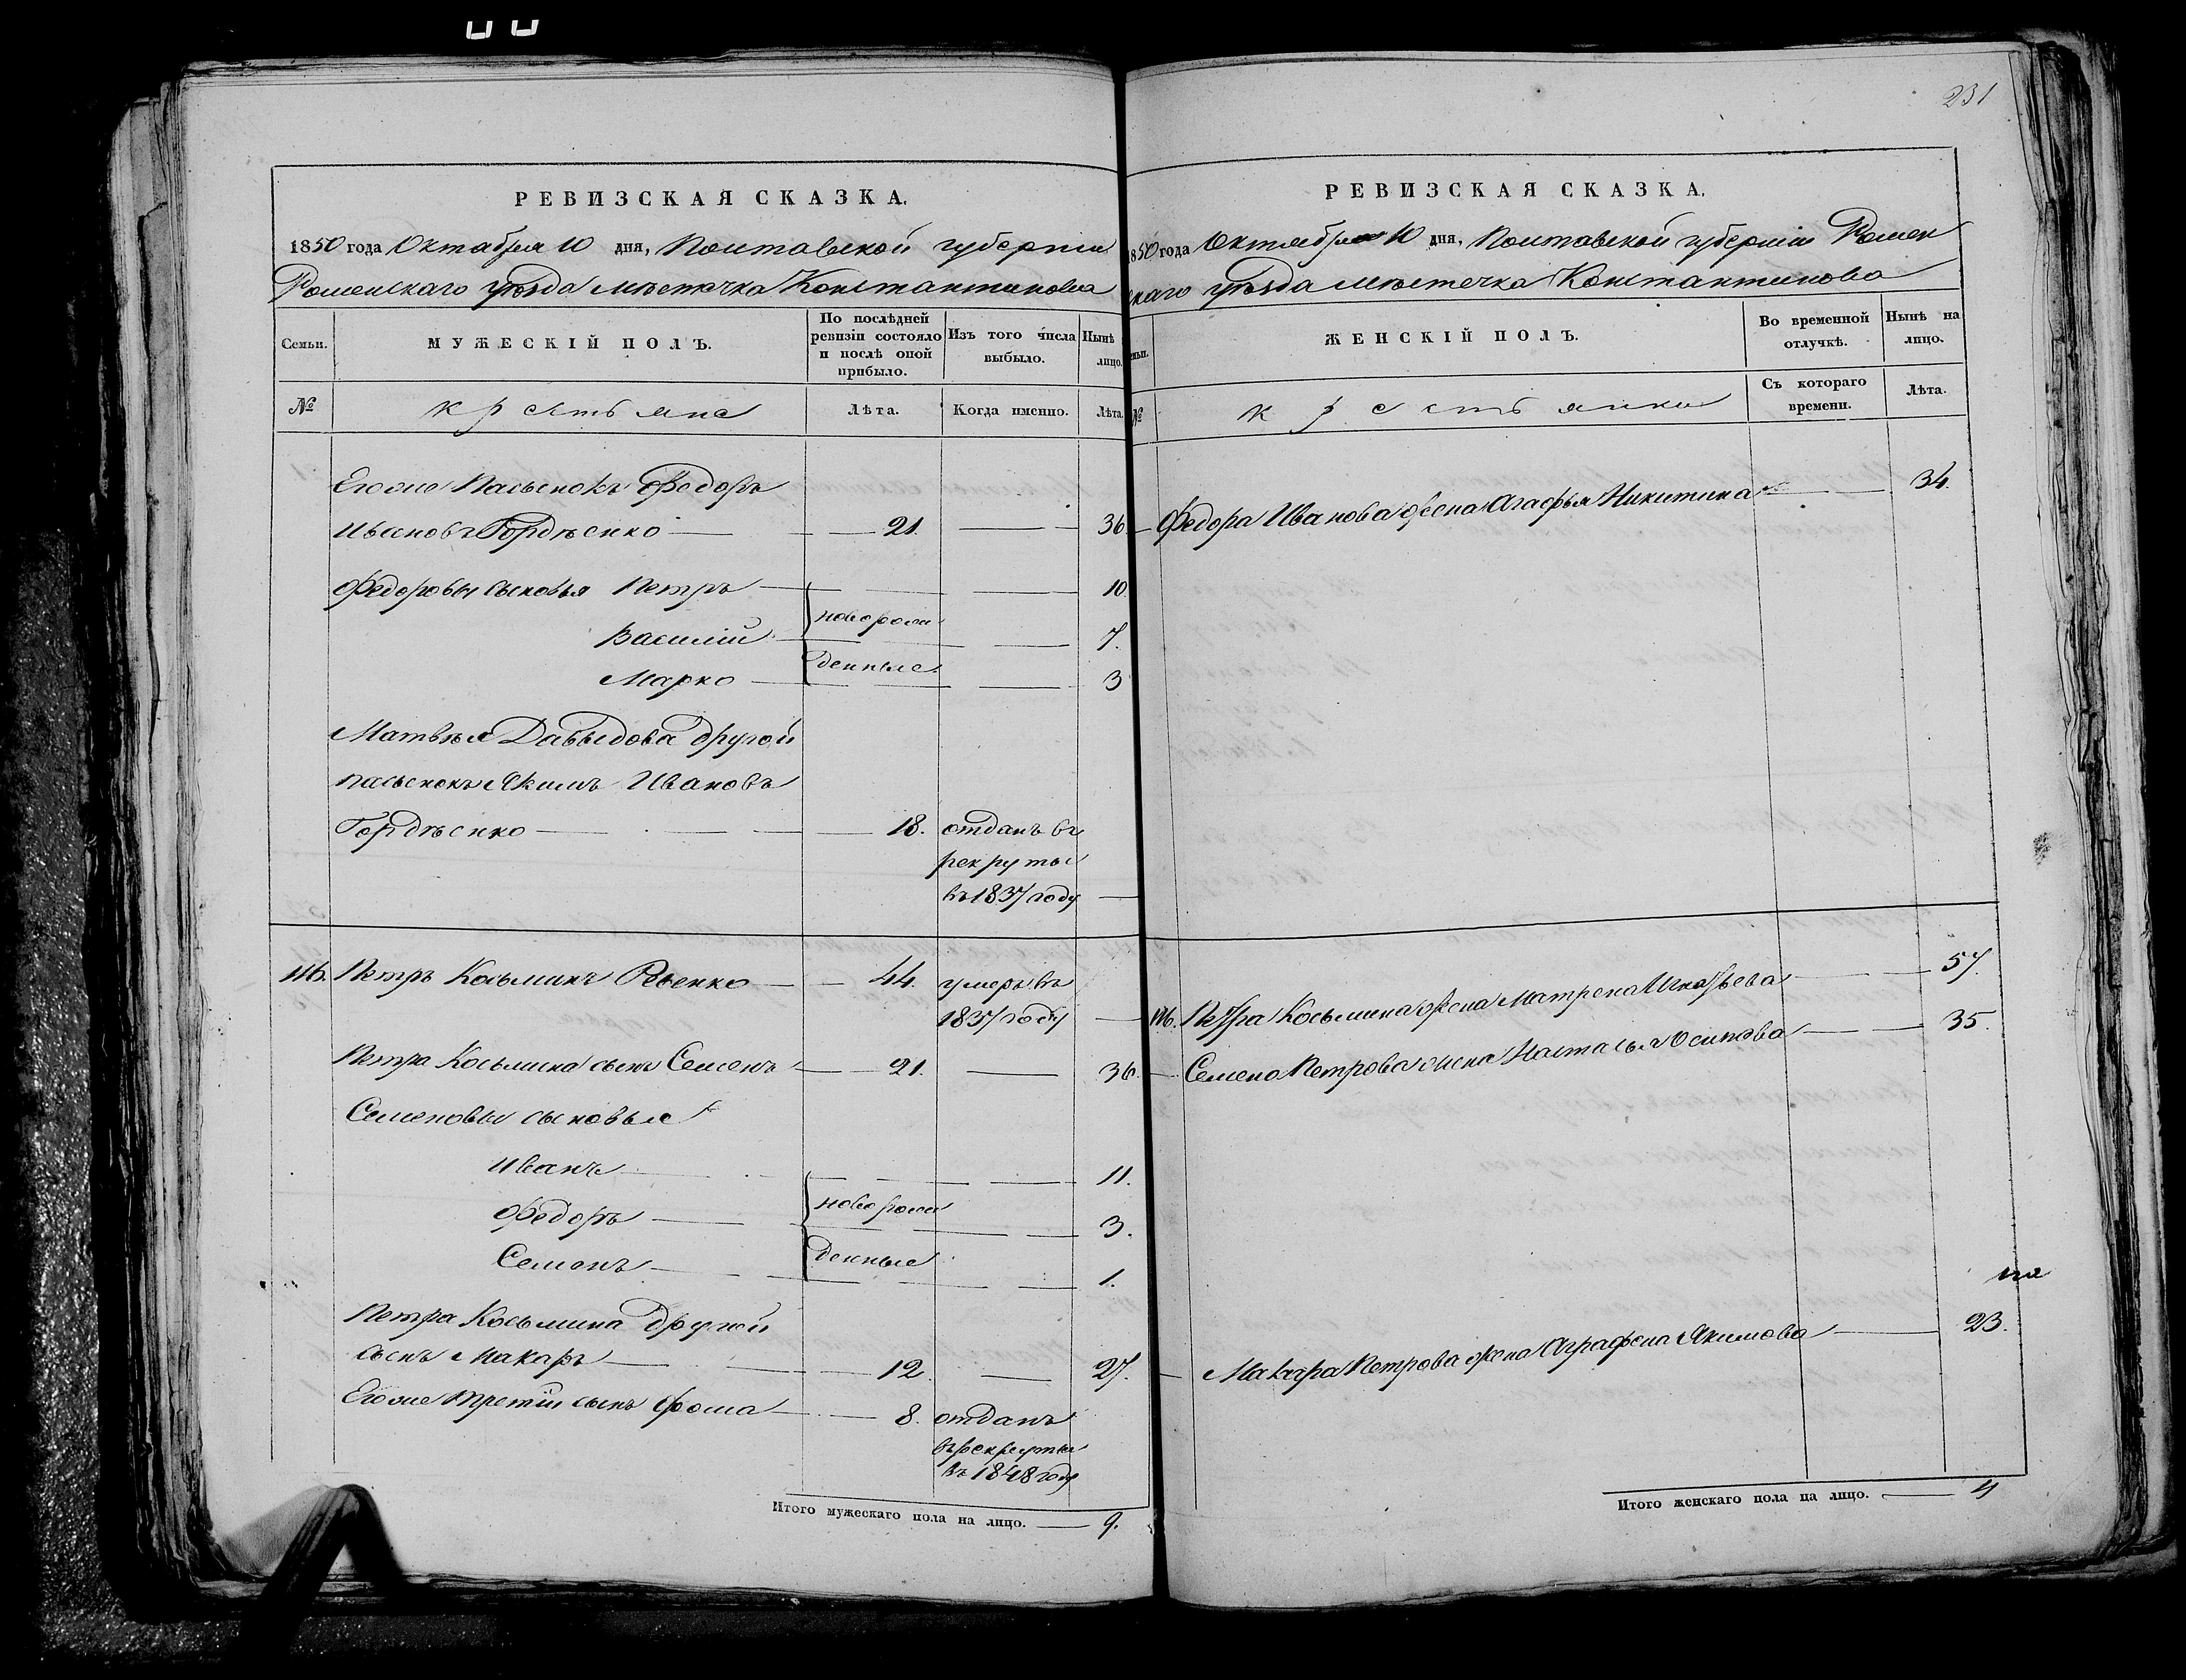 231
РЕВИЗСКАЯ СКАЗКА.
1850 года Октября 10 дня, Полтавской губернии
Роменскаго уѣзда мѣстечка Константинова
Семьи.
МУЖЕСКІЙ ПОЛЪ.
По послѣдней ревизіи состояло и послѣ оной прибыло.
Изъ того числа выбыло.
Нынѣ лицо.
№
крестьяне
Лѣта.
Когда именно.
Лѣта.
Егоже пасынокъ Федоръ
Ивановъ Гордѣенко — 21. — 36
Федоровы сыновья Петръ — 10
новорож
Василій — 7.
денные
Марко — 3
Матвѣя Давыдова другой
пасынокъ Якимъ Ивановъ
Гордѣенко — 18. отданъ въ
рекруты
въ 1837 году —
116. Петръ Косьминъ — 44. умеръ въ
1837 году —
Петра Косьмина сынъ Семенъ — 21. — 36.
Семеновы сыновья
Иванъ — 11.
новорож
Федоръ — 3.
денные
Семенъ — 1.
Петра Косьмина другой
сынъ Макаръ — 12. — 27.
Егоже третій сынъ Фома — 8. отданъ
въ рекруты
въ 1848 году
Итого мужескаго пола на лицо. — 9.
РЕВИЗСКАЯ СКАЗКА.
1850 года Октября 10 дня, Полтавской губерніи Ромен
скаго уѣзда мѣстечка Константинова
ЖЕНСКІЙ ПОЛЪ.
Во временной отлучкѣ.
Нынѣ на лицо.
№
крестьянки
Съ котораго времени.
Лѣта.
— Федора Иванова жена Агафья Никитина — 34.
116. Петра Косьмина жена Матрена Игнатьева — 57.
— Семена Петрова жена Настасья Осипова — 35.
— Макара Петрова жена Аграфена Якимова — 23.
Итого женскаго пола на лицо. — 4